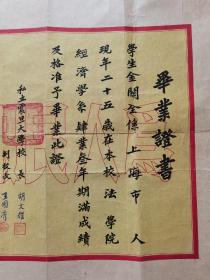 畢業證書
學生金關全係上海市人
現年二十五歲在本校法學院
經濟學系肄業叁年期滿成績
及格准予畢業此證
私立震旦大學校長 胡文耀
副校長